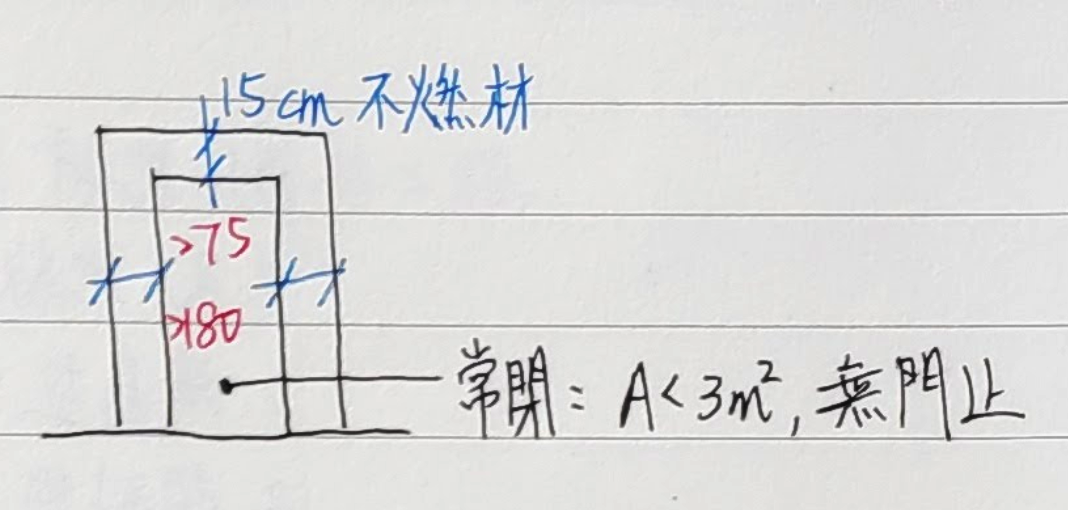 15cm 不燃材
>75
>180
常閉: A<3m², 無門止